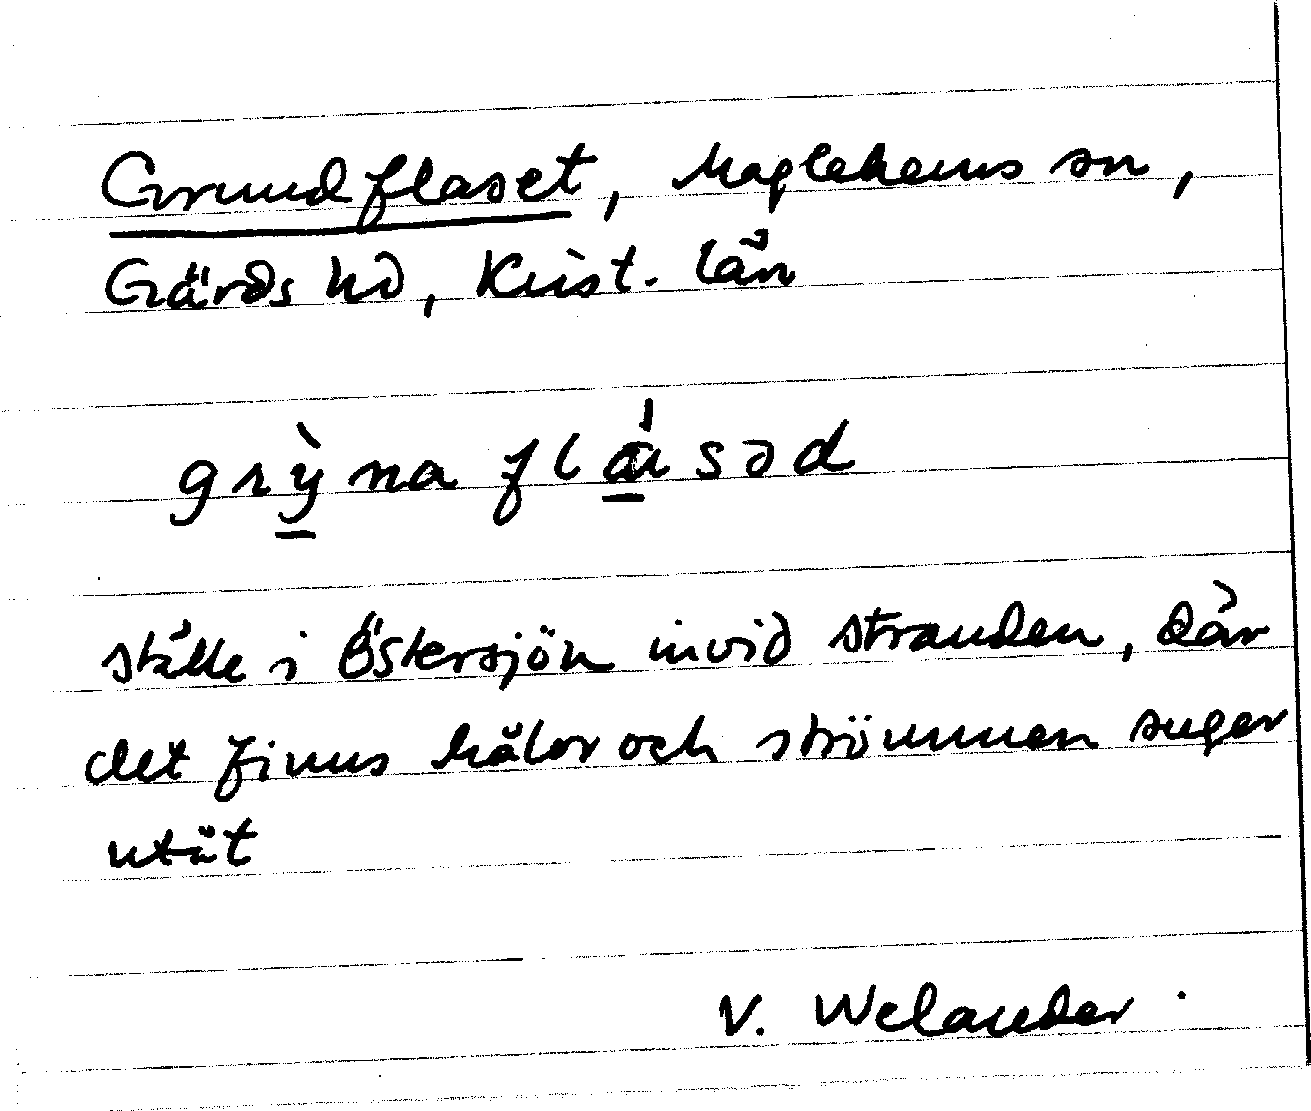 Grundflaset, Maglehems sn,
Gärds hd, Krist. län
grỳna flásəd
ställe i Östersjön invid stranden, där
det finns hålor och strömmen suger
utåt
V. Welander.